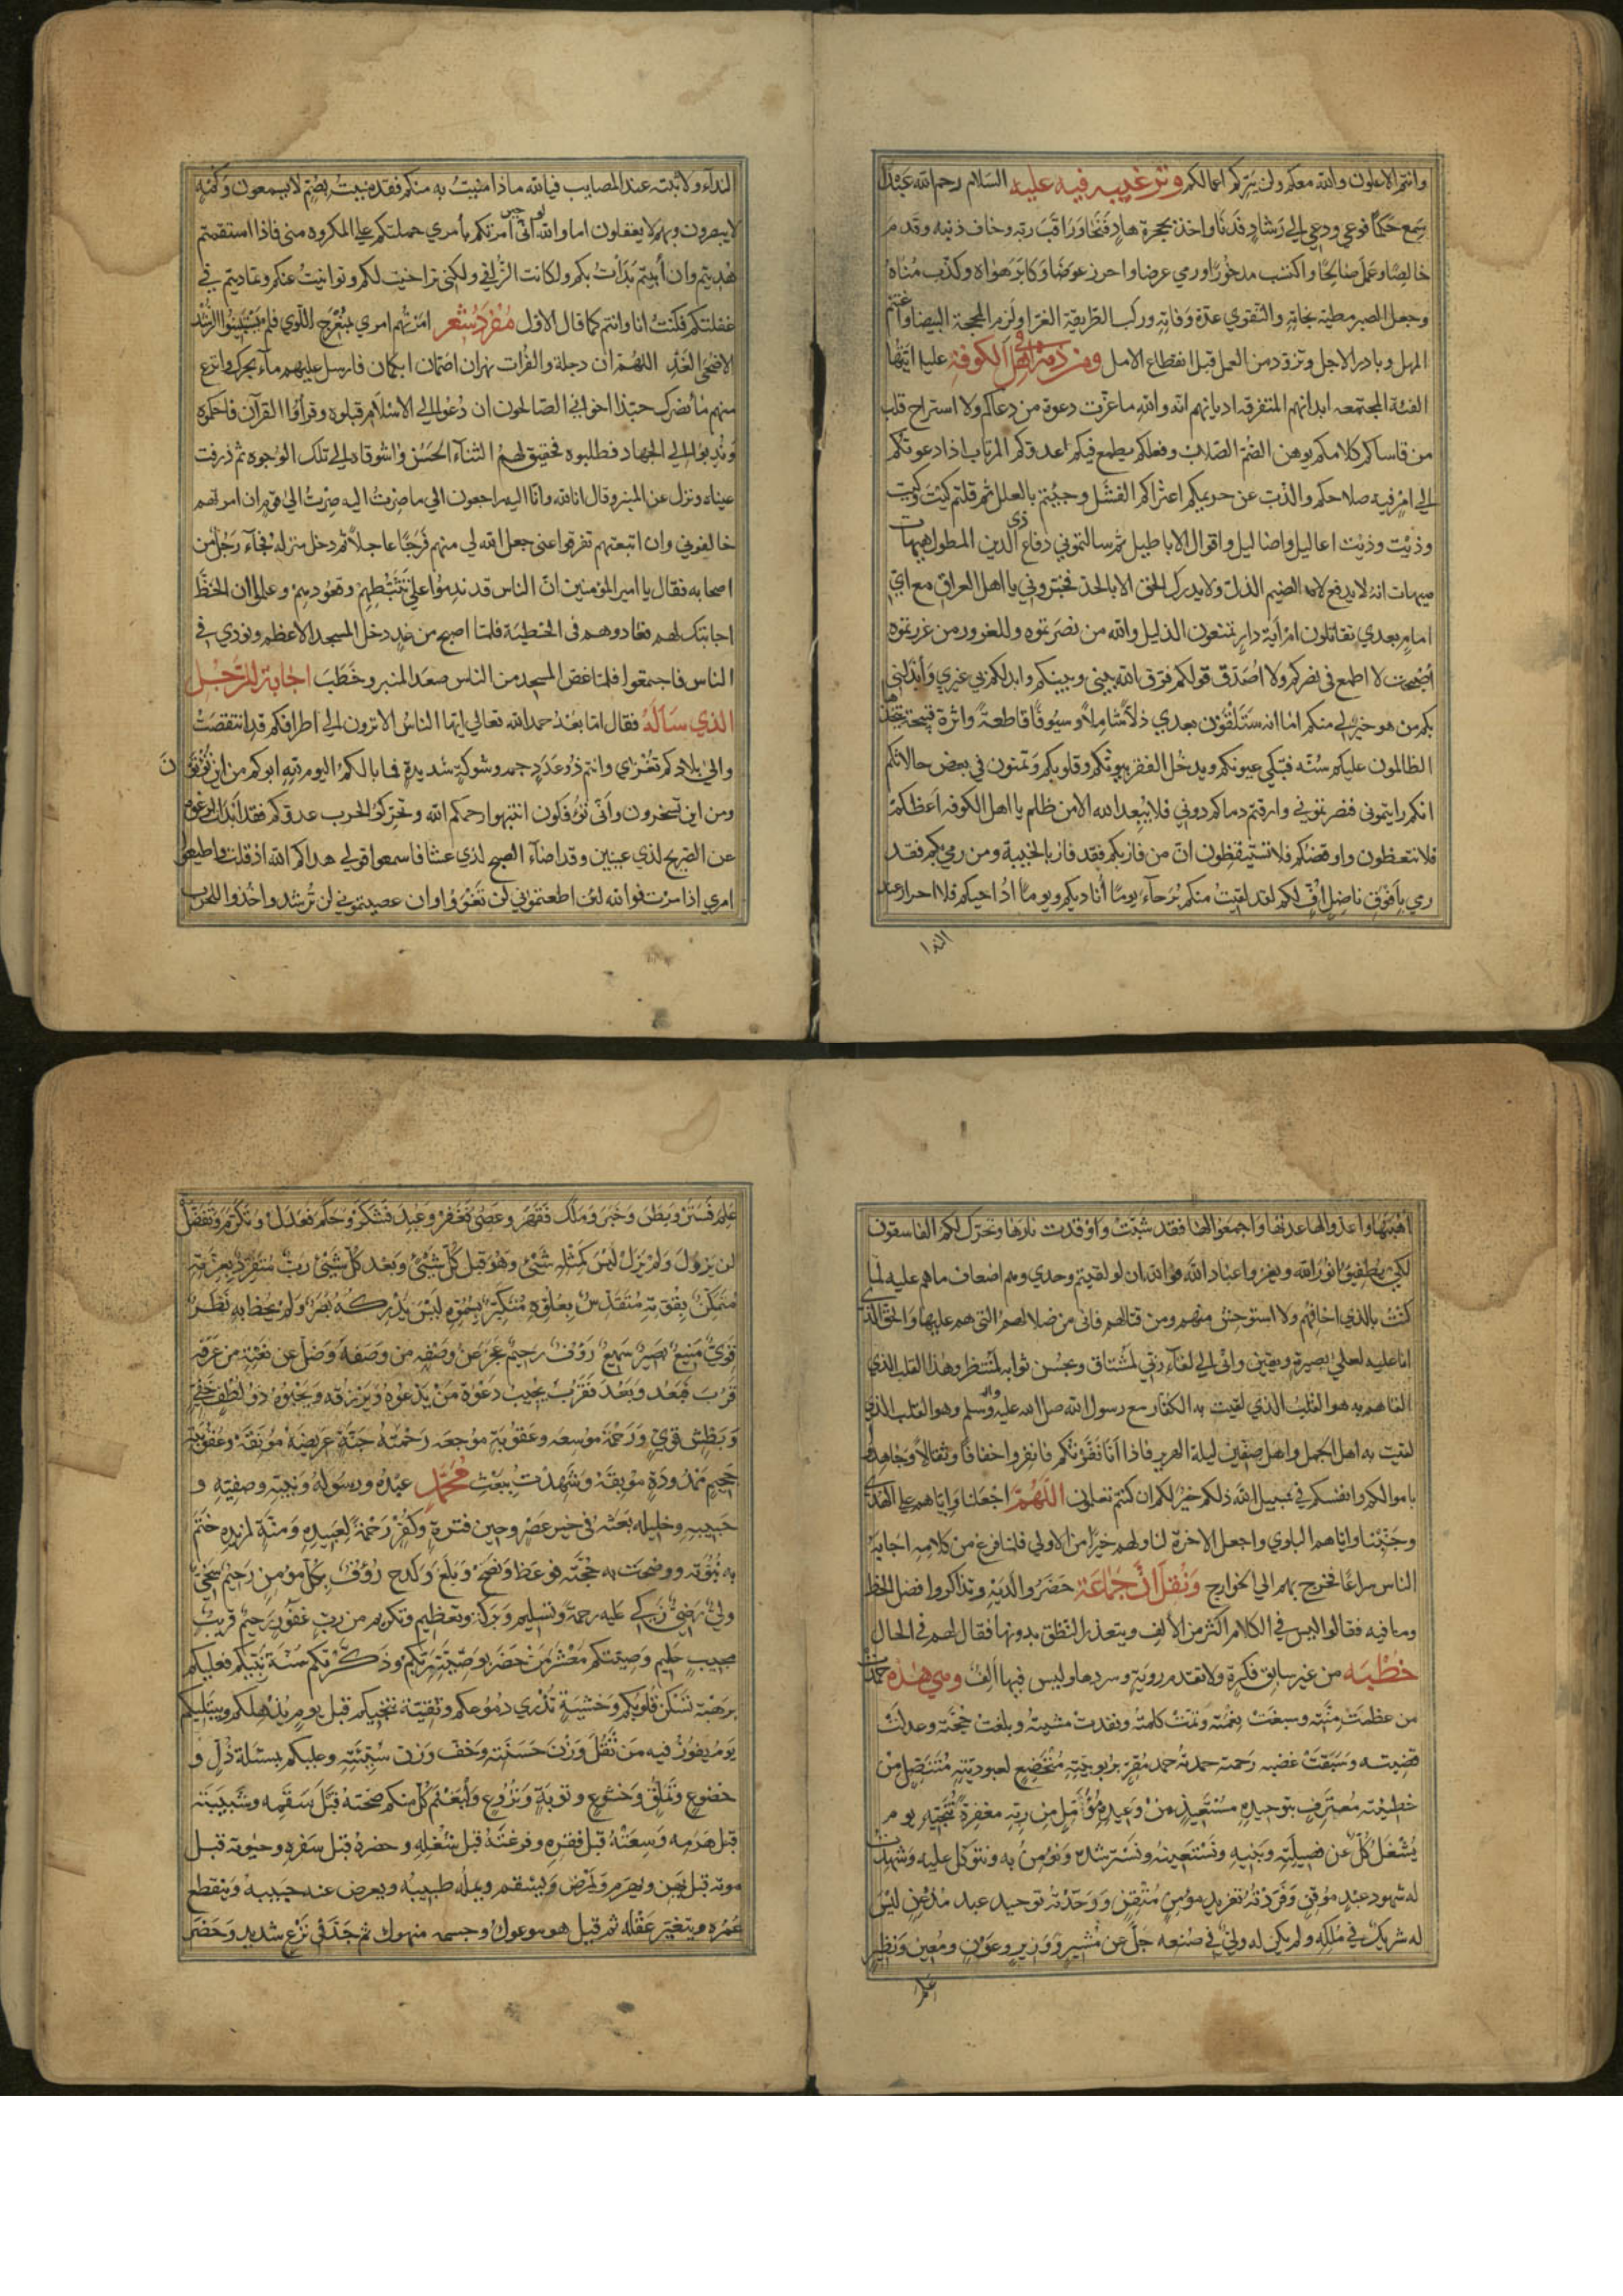 وانتم الاعلون والله معكم ولن يتركم اعمالكم وترغيبه فيه عليه السلام رحم الله عبدًا
سمع حكمًا فوعي ودعي الي رشاد فدنا واخذ بحجزة هاد فنجا وراقب ربه وخاف ذنبه وقدم
خالصًا وعمل صالحًا واكتسب مدخورًا ورمي عرضا واحرز عوضا وكابر هواه وكذب مناه
وجعل الصبر مطية نجاته والتقوي عدة وفاته وركب الطريقة الغرا ولزم المحجة البيضا واغتنم
المهل وبادر الاجل وتزود من العمل قبل انقطاع الامل ومن ذمه اهل الكوفة عليه ايتها
الفئة المجتمعه ابدانهم المتفرقه اديانهم انه والله ماعزت دعوة من دعاكم ولا استراح قلب
من قاساكم كلامكم يوهن الصم الصلاب وفعلكم يطمع فيكم عدوكم المرتاب اذا دعوتكم
الي امر فيه صلاحكم والذب عن حريمكم اعتراكم الفشل وجئتم بالعلل ثم قلتم كيت وكيت
وذيت وذيت اعاليل واضاليل واقوال الاباطيل ثم سالتموني دفاع ذي الدين المطول هيهات
هيهات انه لا يدفع الضيم الذل ولا يدرك الحق الا بالجد فخبروني يا اهل العراق مع اي
امام بعدي تقاتلون ام اية دار تمنعون الذليل والله من نصرتموه والمغرور من غررتموه
اصبحت لا اطمع في نصركم ولا اصدق قولكم فرق الله بيني وبينكم وابدلكم بي غيري وأبدلني
بكم من هو خير لي منكم اما انه ستلقون بعدي ذلاً شاملاً وسيوفًا قاطعةً واثرة قبيحة يتخذها
الظالمون عليكم سنه فتبكي عيونكم ويدخل الفقر بيوتكم وقلوبكم وتمنون في بعض حالاتكم
انكم رايتموني فنصرتموني وارقتم دماكم دوني فلا يبعد الله الا من ظلم يا اهل الكوفه أعظكم
فلا تتعظون واوقظكم فلا تستيقظون ان من فاز بكم فقد فاز بالخيبة ومن رمي بكم فقد
رمي بأفوق ناضل أف لكم لقد لقيت منكم برحاء يومًا أناديكم ويومًا اناجيكم فلا احرار عند
الندا
النداء ولا ثبته عند المصايب فيالله ماذا منيت به منكم فقد منيت بصم لا يسمعون وكمه
لا يبصرون وبهم لا يعقلون اما والله لو اني حين امرتكم بأمري حملتكم علي المكروه مني فاذا استقمتم
هديتم وان أبيتم بدأت بكم ولكانت الزلفي ولكني تراخيت لكم وتوانيت عنكم وتماديتم في
غفلتكم فكنت انا وانتم كما قال الاول مفرد شعر امرتهم امري بمنعرج اللوي فلم يستبينوا الرشد
الا ضحي الغد اللهم ان دجلة والفرات نهران اصمان ابكمان فارسل عليهم ماء بحرك وانزع
منهم ماء نصرك حبذا اخواني الصالحون ان دعوا الي الاسلام قبلوه وقرأوا القرآن فاحكموه
وندبوا الي الجهاد فطلبوه فحقيق لهم الثناء الحسن واشوقاه الي تلك الوجوه ثم ذرفت
عيناه ونزل عن المنبر وقال انا لله وانا اليه راجعون الي ما صرت اليه صرت الي قوم ان امرتهم
خالفوني وان اتبعتهم تفرقوا عني جعل الله لي منهم فرجًا عاجلاً ثم دخل منزله فجاء رجل من
اصحابه فقال يا امير المؤمنين ان الناس قد ندموا علي تثبطهم وقعودهم وعلموا ان الحظ
اجابتك لهم فعاودهم في الخطبة فلما اصبح من غد دخل المسجد الاعظم ونودي في
الناس فاجتمعوا فلما غص المسجد من الناس صعد المنبر وخطب اجابة للرجل
الذي سأله فقال اما بعد حمد الله تعالي ايها الناس الا ترون الي اطرافكم قد انتقصت
والي بلادكم تغزي وانتم ذو عدد جم وشوكة شديدة فما بالكم اليوم لله ابوكم من اين تؤتون
ومن اين تسخرون وأني تؤفكون انتبهوا رحمكم الله وتحركوا لحرب عدوكم فقد ابدت الرغوة
عن الصريح لذي عينين وقد اضاء الصبح لذي عشا فاسمعوا قولي هداكم الله اذ قلت واطيعوا
امري اذا مرت فوالله لئن اطعتموني لن تغووا وان عصيتموني لن ترشدوا خذوا للحرب
أهبتها واعدوا لها عدتها واجمعوا لها فقد شبت واوقدت نارها وتحرك لكم الفاسقون
لكي يطفئوا نور الله ويغزوا عباد الله فوالله ان لو لقيتهم وحدي وهم اضعاف ما هم عليه لما
كنت بالذي اخافهم ولا استوحش منهم ومن قتالهم فاني من ضلالتهم التي هم عليها والحق الذي
انا عليه لعلي بصيرة ويقين واني الي لقاء ربي لمشتاق وبحسن ثوابه لمنتظر وهذا القلب الذي
القاهم به هو القلب الذي لقيت به الكفار مع رسول الله صلي الله عليه واله وسلم وهو القلب الذي
لقيت به اهل الجمل واهل صفين ليلة الهرير فاذا أنا نفرتكم فانفروا خفافًا وثقالاً وجاهدوا
باموالكم وانفسكم في سبيل الله ذلكم خير لكم ان كنتم تعلمون اللهم اجعلنا واياهم علي الهدي
وجنبنا واياهم البلوي واجعل الاخرة لنا ولهم خيرًا من الاولي فلما فرغ من كلامه اجابه
الناس سراعًا فخرج بهم الي الخوارج ونقل أن جماعة حضروا لديه وتذاكروا فضل الخط
وما فيه فقالوا ليس في الكلام اكثر من الالف ويتعذر النطق بدونها فقال لهم في الحال
خطبه من غير سابق فكرة ولا تقدم روية وسردها وليس فيها الف وهي هذه حمدت
من عظمت منته وسبغت نعمته وتمت كلمته ونفدت مشيته وبلغت حجته وعدلت
قضيته وسبقت غضبه رحمته حمدته حمد مقر بربوبيته متخضع لعبوديته متنصل من
خطيئته معترف بتوحيده مستعيذ من وعيده مؤمل من ربه مغفرة تنجيه يوم
يشغل كل عن فصيلته وبنيه ونستعينه ونسترشده ونؤمن به ونتوكل عليه وشهدت
له شهود عبد موقن وفردته تفريد مؤمن متقن ووحدته توحيد عبد مذعن ليس
له شريك في ملكه ولم يكن له ولي في صنعه جل عن مشير ووزير وعون ومعين ونظير
علم
علم فستر وبطن وخبر وملك فقهر وعصي فغفر وعبد فشكر وحكم فعدل وتكرم وتفضل
لن يزول ولم يزل ليس كمثله شئ وهو قبل كل شئ وبعد كل شئ رب متفرد بعزته
متمكن بقوته متقدس بعلوه متكبر بسموه ليس يدركه بصر ولم يحط به نظر
قوي منيع بصير سميع رؤف رحيم عجز عن وصفه من وصفه وضل عن نعته من عرفه
قرب فبعد وبعد فقرب يجيب دعوة من يدعوه ويرزقه ويحبوه ذو لطف خفي
وبطش قوي ورحمة موسعه وعقوبة موجعه رحمته جنة عريضة مونقة وعقوبته
جحيم ممدودة موبقة وشهدت ببعث محمد عبده ورسوله ونبيه وصفيه و
حبيبه وخليله بعثه في خير عصر وحين فترة وكفر رحمة لعبيده ومنة لمزيده ختم
به نبوته ووضحت به حجته فوعظ ونصح وبلغ وكدح رؤف بكل مؤمن رحيم سخي
ولي رضي زكي عليه رحمة وتسليم وبركة وتعظيم وتكريم من رب غفور رحيم قريب
مجيب حليم وصيتكم معشر من حضر بوصية ربكم وذكرتكم سنة نبيكم فعليكم
برهبة تسكن قلوبكم وخشية تذري دموعكم وتقية تنجيكم قبل يوم يذهلكم ويبتليكم
يوم يفوز فيه من ثقل وزن حسنته وخف وزن سيئته وعليكم بمسئلة ذل و
خضوع وتملق وخشوع وتوبة ونزوع وليغنم كل منكم صحته قبل سقمه وشبيبته
قبل هرمه وسعته قبل فقره وفرغته قبل شغله وحضره قبل سفره وحيوته قبل
موته قبل يهن ويهرم ويمرض ويسقم ويمله طبيبه ويعرض عنه حبيبه وينقطع
عمره ويتغير عقله ثم قيل هو موعوك وجسمه منهوك ثم جذ في نزع شديد وحضر